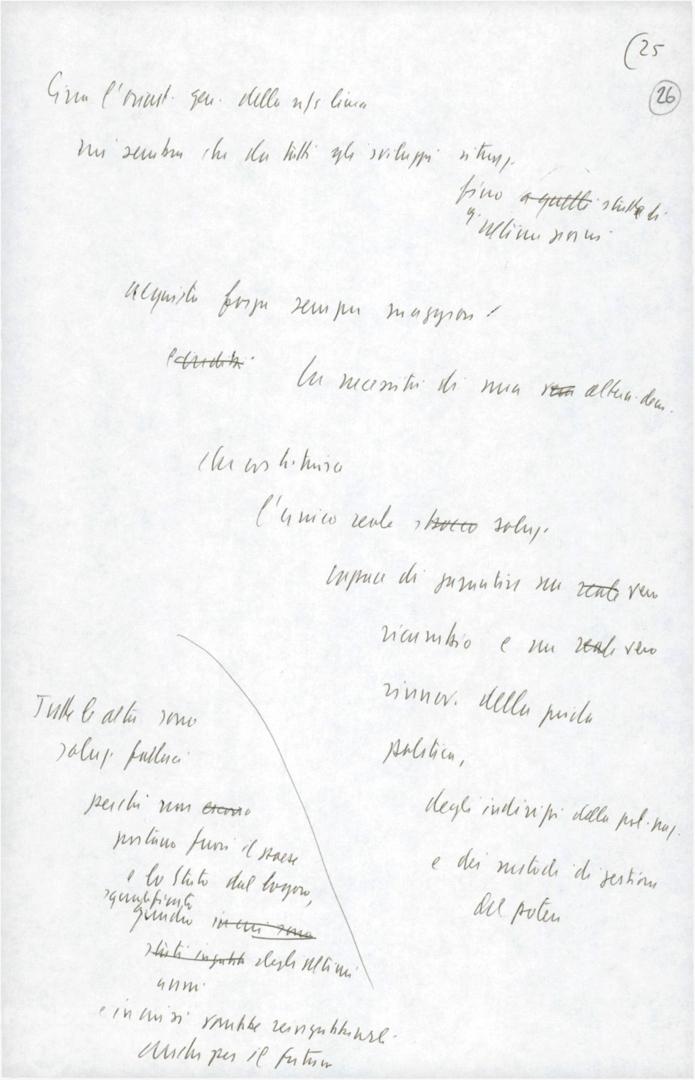 (25
26
Circa l'orient. gen. della n/s linea
mi sembra che da tutti gli sviluppi situaz.
fino a quelli
ultimi giorni
acquista forza sempre maggiore
la necessità di una vera altern. dem.
che costituisca
l'unico reale sbocco soluz.
capace di garantire un reale vero
ricambio e un reale vero
rinnov. della guida
politica,
degli indirizzi della pol. naz.
e dei metodi di gestione
del potere
Tutte le altre sono
soluz. fallaci
perché non
portano fuori il paese
e lo Stato dal logoro,
squalificato
quadro in cui sono
stati degli ultimi
anni
e in cui si
anche per il futuro